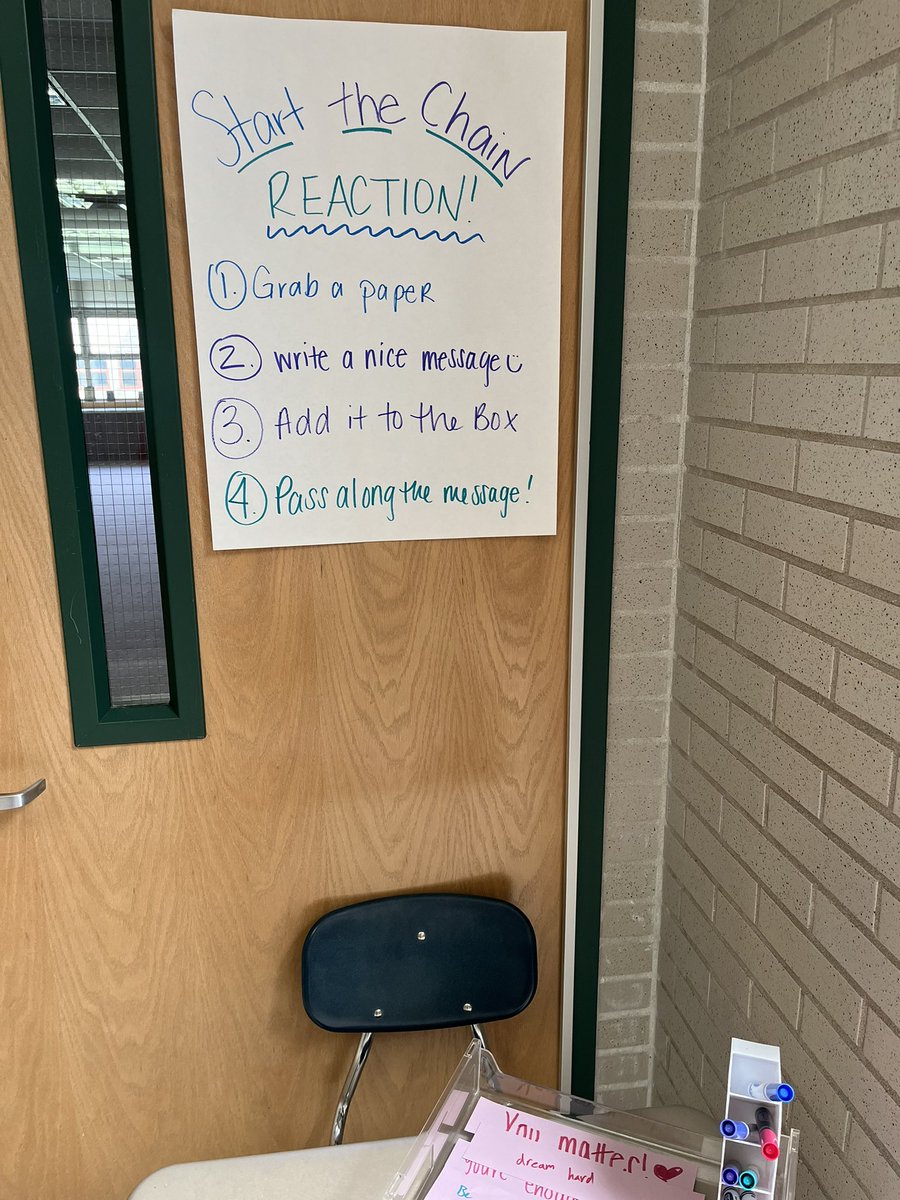 Start the Chain
REACTION!
1. Grab a paper
2. write a nice message
3. Add it to the Box
4. Pass along the message!
You matter!
dream hard
you're enough
Be